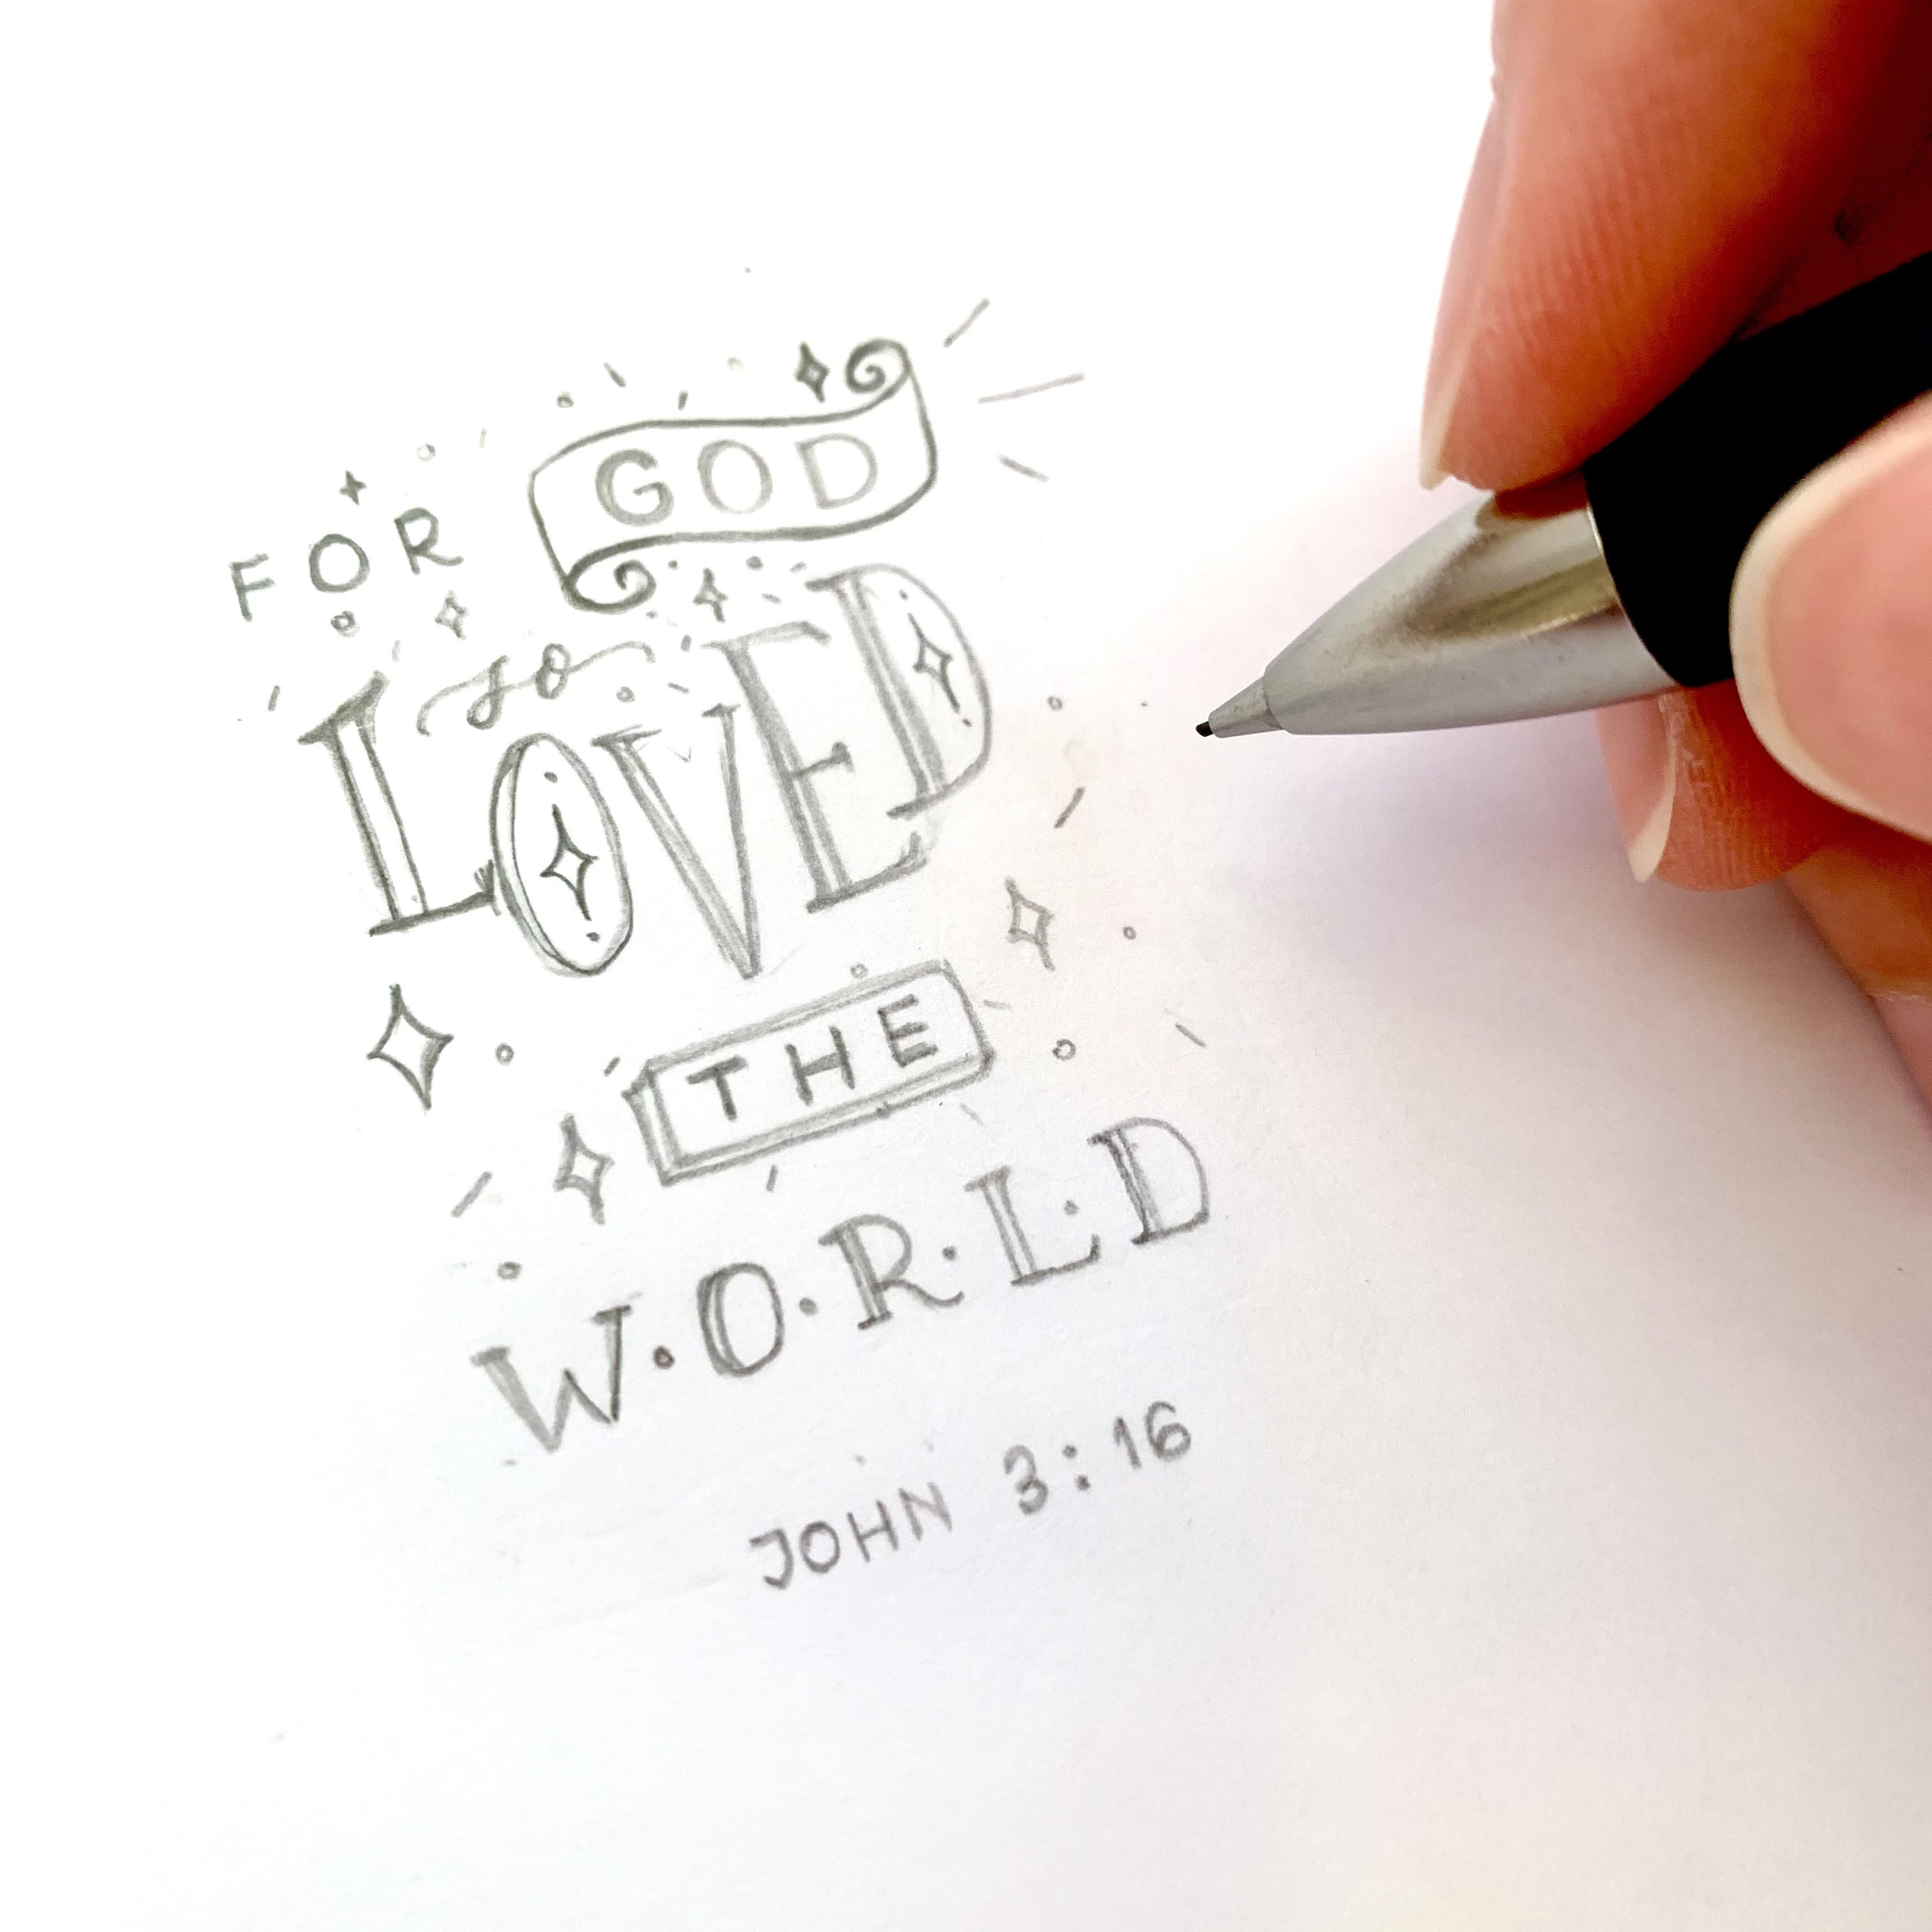 FOR GOD
so
LOVED
THE
W·O·R·L·D
JOHN 3:16